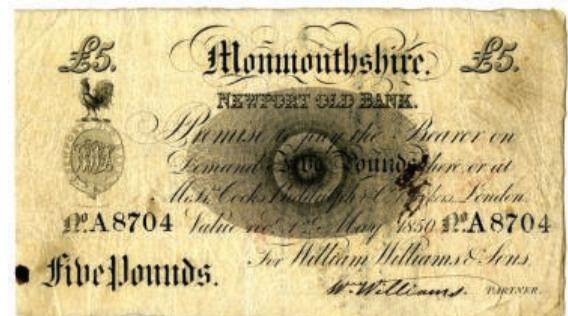 £5. Monmouthshire. £5.
NEWPORT OLD BANK.
I Promise to pay the Bearer on
Demand Five Pounds here or at
Messrs. Cocks Biddulph & Co. Bankers London.
No. A8704 Value recd. 1st May 1850 No. A8704
For William Williams & Sons
Five Pounds.
Wm. Williams. PARTNER.